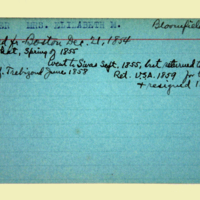 MRS. ELIZABETH M. Bloomfiel
Boston Dec. 21, 1854
Spring of 1855
Went to Sivas Sept. 1855, but returned to
Trebizond June 1858 Ret. USA. 1859 for
+ resigned 1